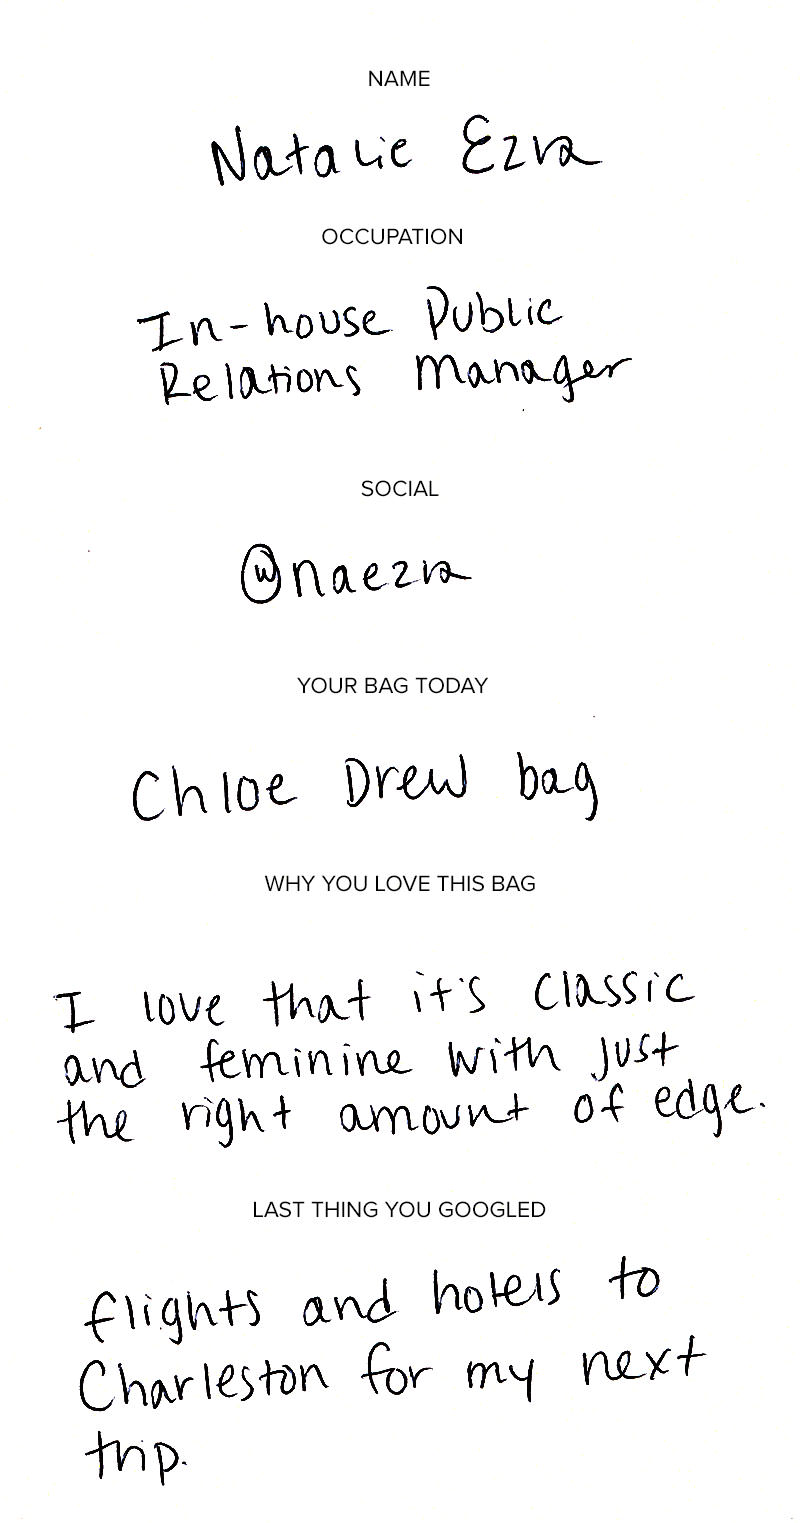 NAME
Natalie Ezra
OCCUPATION
In-house Public
Relations Manager
SOCIAL
@naezra
YOUR BAG TODAY
Chloe Drew bag
WHY YOU LOVE THIS BAG
I love that it's classic
and feminine with just
the right amount of edge.
LAST THING YOU GOOGLED
flights and hotels to
Charleston for my next
trip.